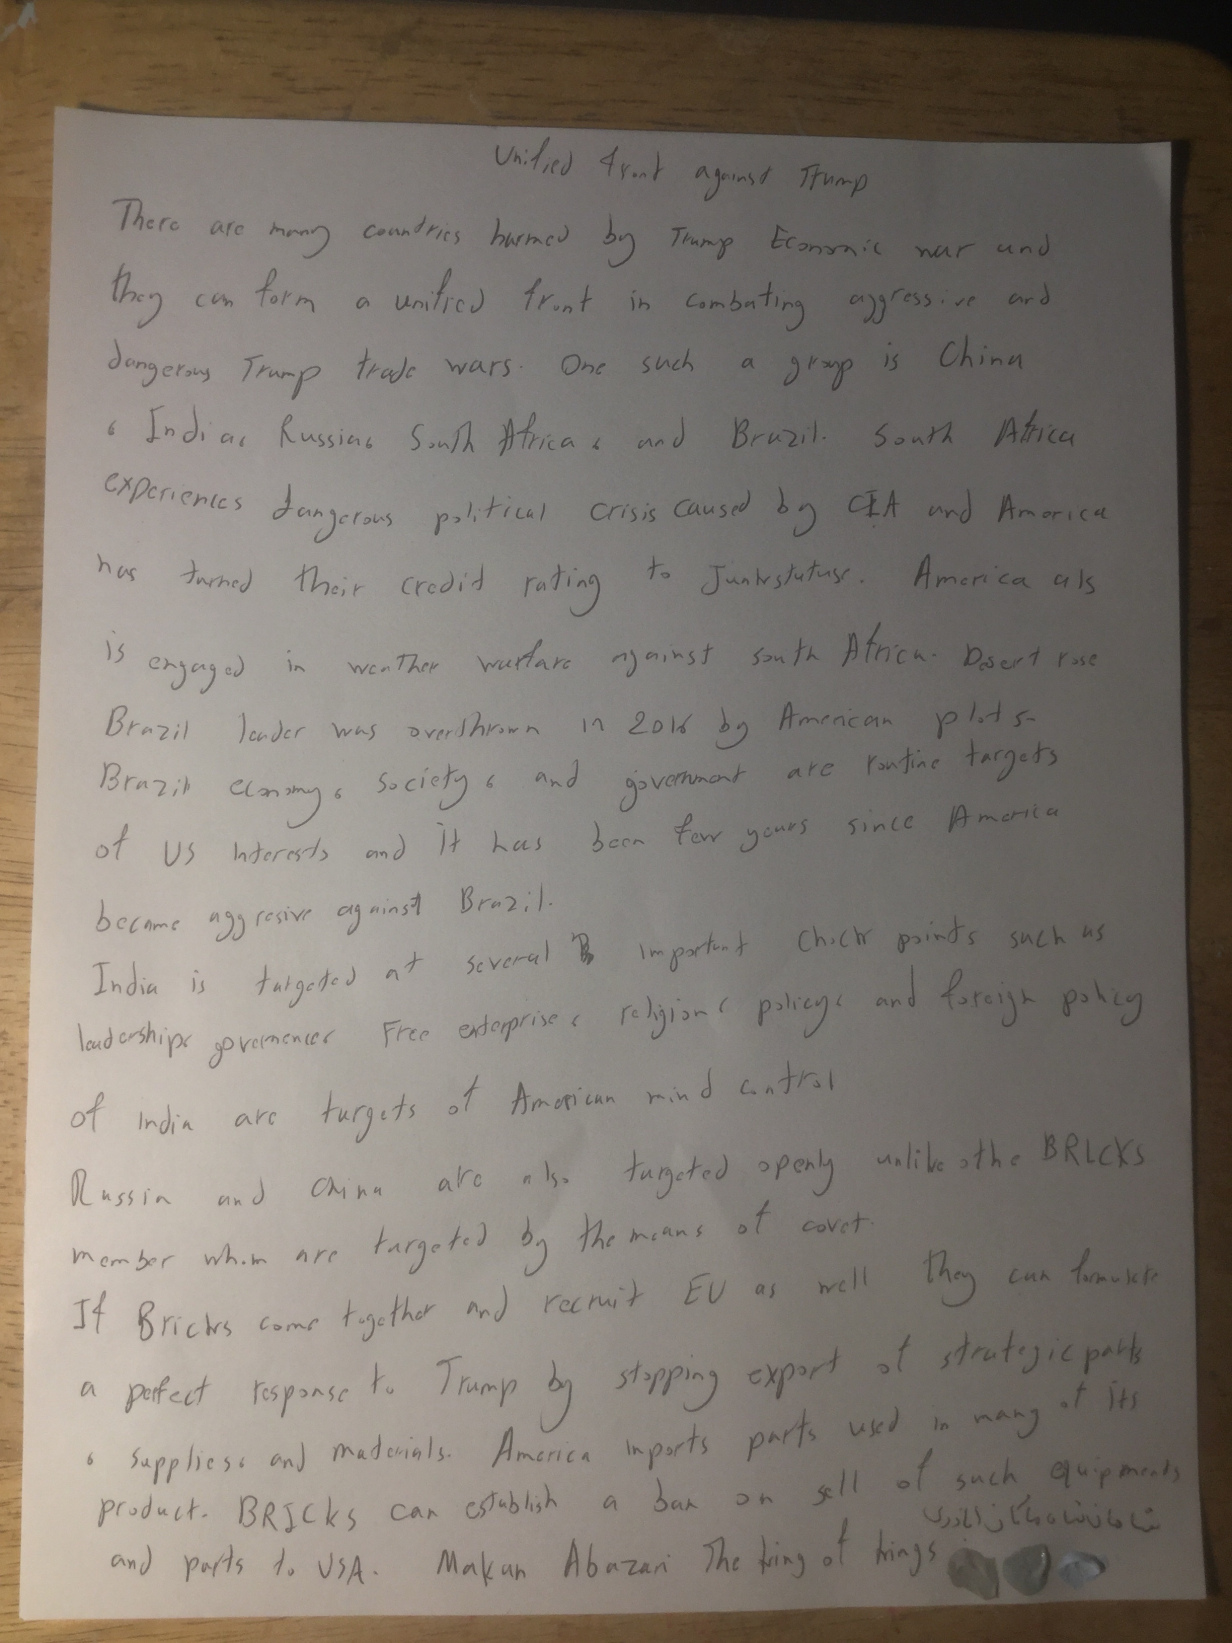 Unified front against Trump
There are many countries harmed by Trump Economic war and
they can form a unified front in combating aggressive and
dangerous Trump trade wars. One such a group is China
، India، Russia، South Africa، and Brazil. South Africa
experiences dangerous political crisis caused by CIA and America
has turned their credit rating to Junkstatuse. America als
is engaged in weather warfare against south Africa. Desert rose
Brazil leader was overthrown in 2016 by American plots.
Brazil economy، society، and government are routine targets
of US interests and it has been few years since America
became aggresive against Brazil.
India is targeted at several important check points such as
leaderships، Free enterprise، religion، policy، and foreign policy
of india are targets of American mind control
Russia and China are also targeted openly unlike othe BRICKS
member whom are targeted by the means of covet.
If Bricks come together and recruit EU as well they can formulate
a perfect response to Trump by stopping export of strategic parts
، supplies، and materials. America imports parts used in many of its
product. BRICKs can establish a ban on sell of such equipments
and parts to USA. Makan Abazari The king of kings